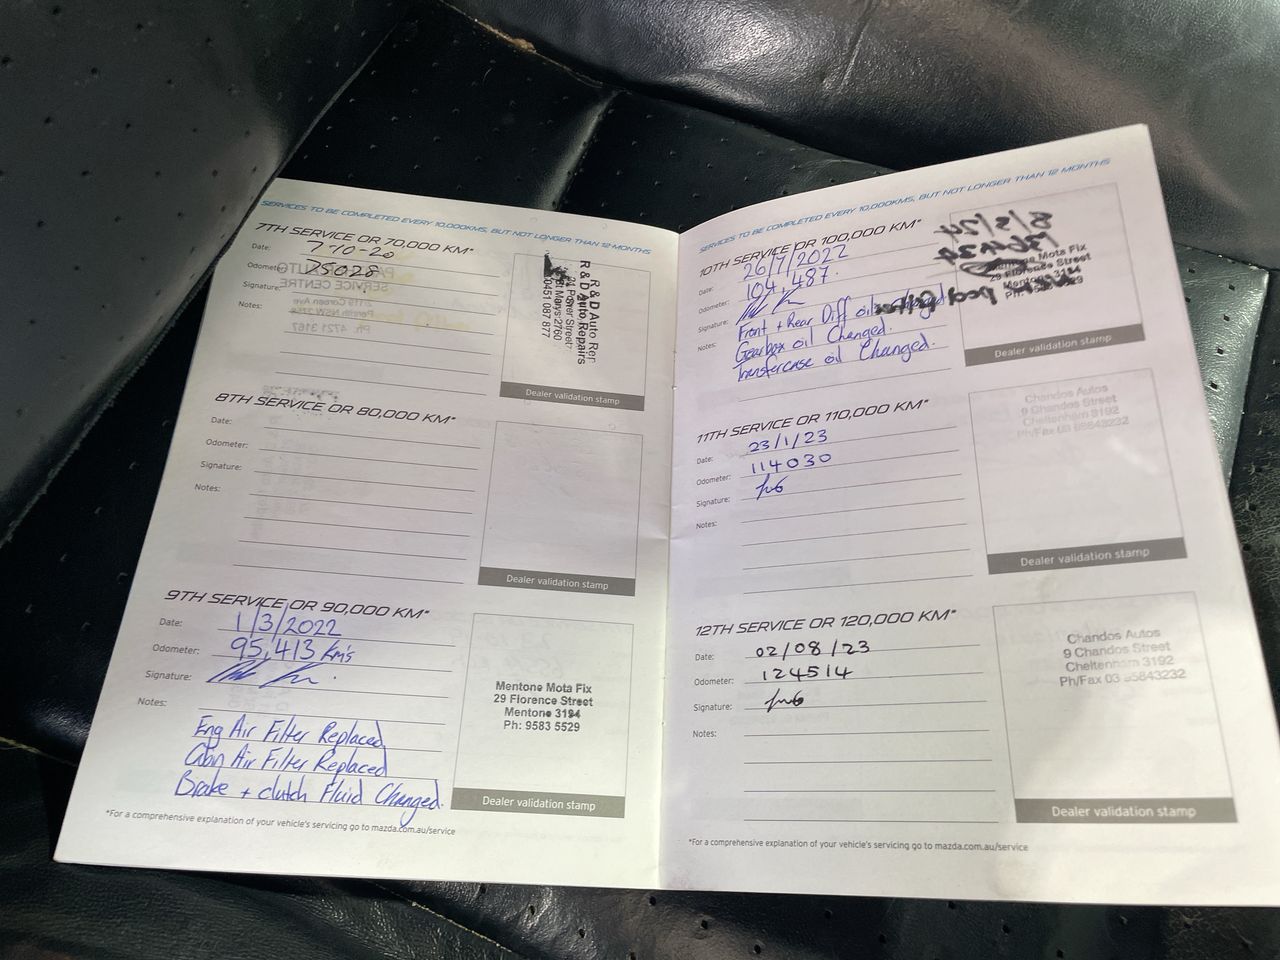 SERVICES TO BE COMPLETED EVERY 10,000KMS, BUT NOT LONGER THAN 12 MONTHS
7TH SERVICE OR 70,000 KM*
Date: 7-10-20
Odometer: 75028
Signature:
Notes:
R & D Auto Repairs
Dealer validation stamp
8TH SERVICE OR 80,000 KM*
Date:
Odometer:
Signature:
Notes:
Dealer validation stamp
9TH SERVICE OR 90,000 KM*
Date: 1/3/2022
Odometer: 95,413 Km's
Signature:
Notes:
Eng Air Filter Replaced
Cabin Air Filter Replaced
Brake + clutch Fluid Changed.
Mentone Mota Fix
29 Florence Street
Mentone 3194
Ph: 9583 5529
Dealer validation stamp
*For a comprehensive explanation of your vehicle's servicing go to mazda.com.au/service
SERVICES TO BE COMPLETED EVERY 10,000KMS, BUT NOT LONGER THAN 12 MONTHS
10TH SERVICE OR 100,000 KM*
Date: 26/7/2022
Odometer: 104,487.
Signature:
Notes: Front + Rear Diff oil changed
Gearbox oil Changed.
Transfercase oil Changed.
Mentone Mota Fix
29 Florence Street
Mentone 3194
Ph: 9583 5529
Dealer validation stamp
11TH SERVICE OR 110,000 KM*
Date: 23/1/23
Odometer: 114030
Signature:
Notes:
Chandos Autos
9 Chandos Street
Cheltenham 3192
Ph/Fax 03 95843232
Dealer validation stamp
12TH SERVICE OR 120,000 KM*
Date: 02/08/23
Odometer: 124514
Signature:
Notes:
Chandos Autos
9 Chandos Street
Cheltenham 3192
Ph/Fax 03 95843232
Dealer validation stamp
*For a comprehensive explanation of your vehicle's servicing go to mazda.com.au/service